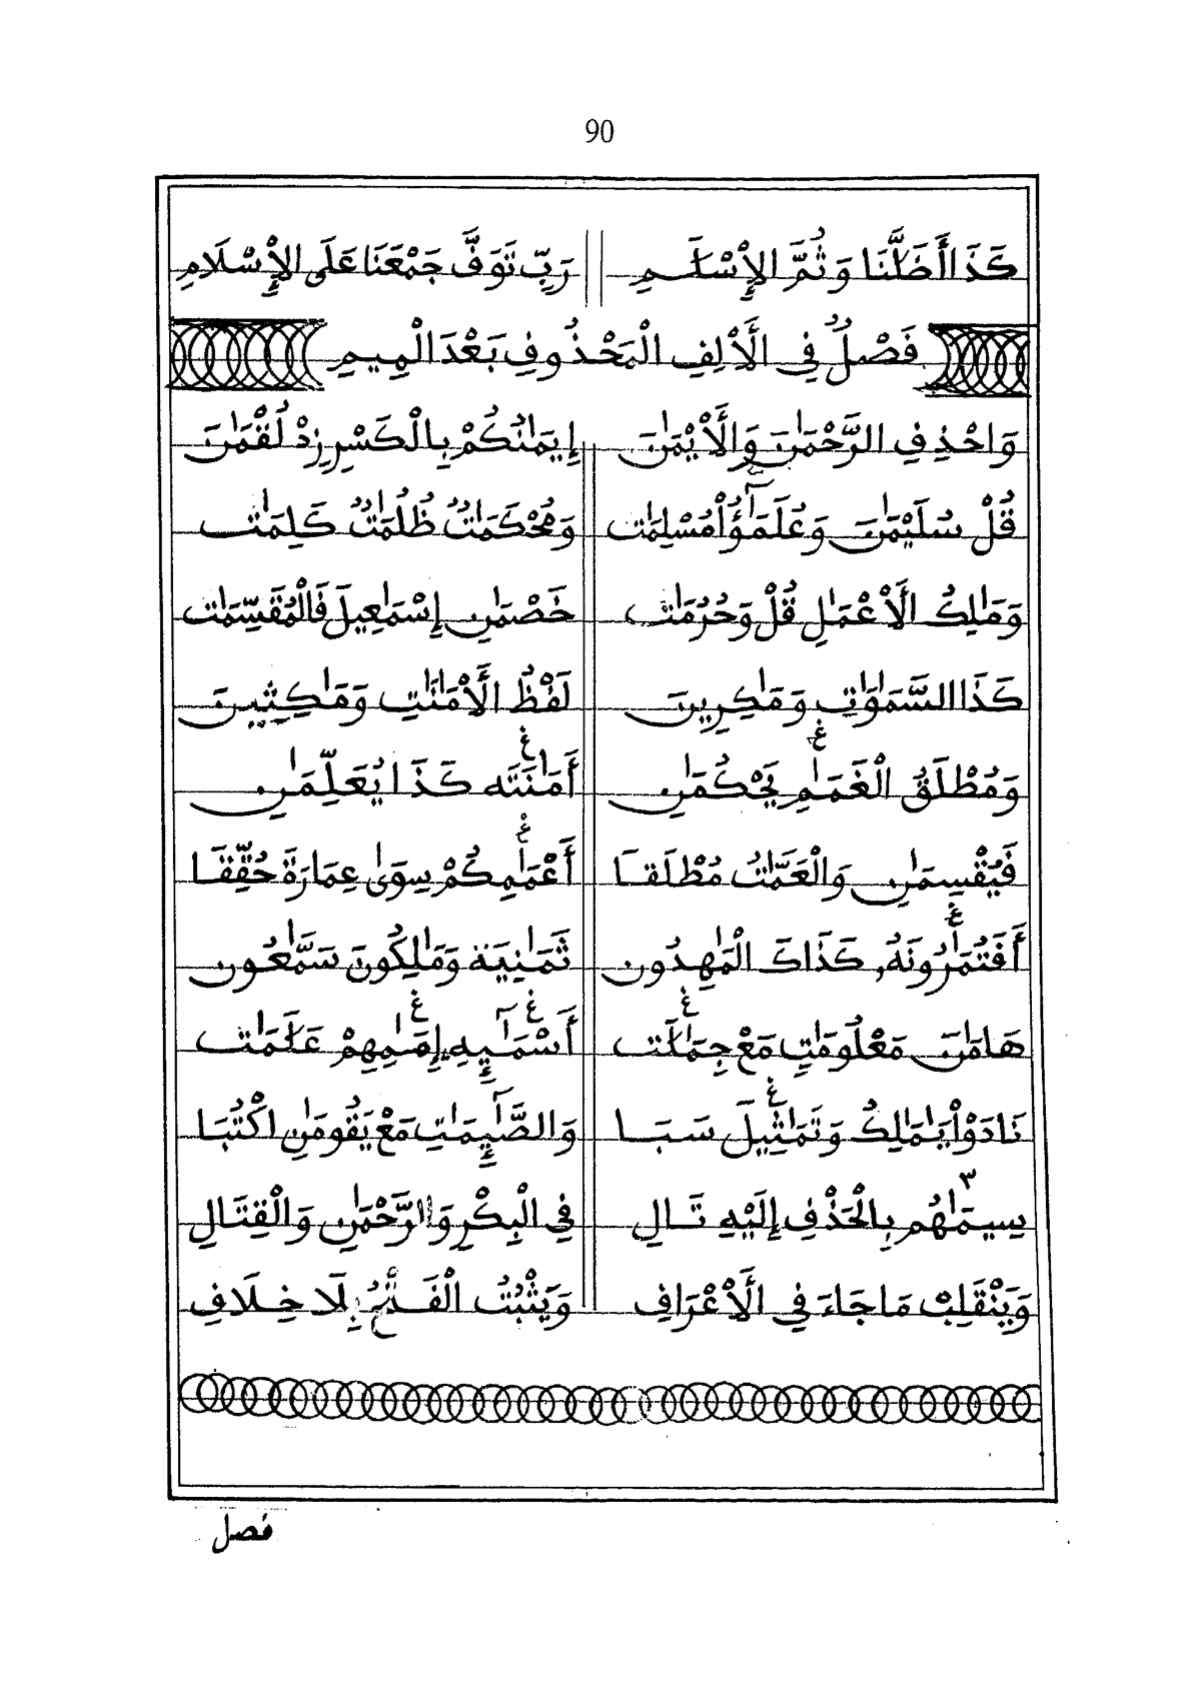 90
كَذَا أَضَلَّنَا وَثُمَّ الإِسْلَٰمِ رَبِّ تَوَفَّ جَمْعَنَا عَلَى الإِسْلَامِ
فَصْلٌ فِي الَْأَلِفِ الْمَحْذُوفِ بَعْدَ الْمِيمِ
وَاحْذِفِ الرَّحْمَٰنَ وَالَأيْمَٰنَ إِيمَٰنُكُمْ بِالْكَسْرِ زِدْ لُقْمَٰنَ
قُلْ سُلَيْمَٰنَ وَعُلَمَٰٓؤُا مُسْلِمَٰت وَمُحْكَمَٰتٌ ظُلُمَٰتٌ كَلِمَٰت
وَمَٰلِكُ الَأعْمَٰلِ قُلْ وَحُرُمَٰت خَصْمَٰنِ إِسْمَٰعِيلَ فَالْمُقَسِّمَٰت
كَذَا السَّمَٰوَٰتِ وَمَٰكِرِينَ لَفْظُ الَأمَٰنَٰتِ وَمَٰكِثِينَ
وَمُطْلَقُ الْغَمَٰمِ يَحْكُمَٰنِ أَمَٰنَتَه كَذَا يُعَلِّمَٰنِ
فَيُقْسِمَٰنِ وَالْعَمَّٰتُ مُطْلَقَا أَعْمَٰمِكُمْ سِوَىٰ عِمَارَةَ حُقِّقَا
أَفَتُمَٰرُونَهُۥ كَذَاكَ الْمَٰهِدُون ثَمَٰنِيَة وَمَٰلِكُونَ سَمَّٰعُون
هَامَٰنَ مَعْلُومَٰتٍ مَعْ جِمَٰلَٰت أَسْمَٰٓئِهِ إِمَٰمِهِمْ عَلَٰمَٰت
نَادَوْاْ يَٰمَٰلِكُ وَتَمَٰثِيلَ سَبَا وَالصَّٰٓئِمَٰتِ مَعْ يَقُومَٰنِ اكْتُبَا
سِيمَٰهُم بِالْحَذْفِ إِلَيْهِ تَالِ فِي الْبِكْرِ وَالرَّحْمَٰنِ وَالْقِتَالِ
وَيَنْقَلِبْ مَا جَاءَ فِي الَأعْرَافِ وَيَثْبُتُ الْفَتْحُ بِلَا خِلَافِ
فصل